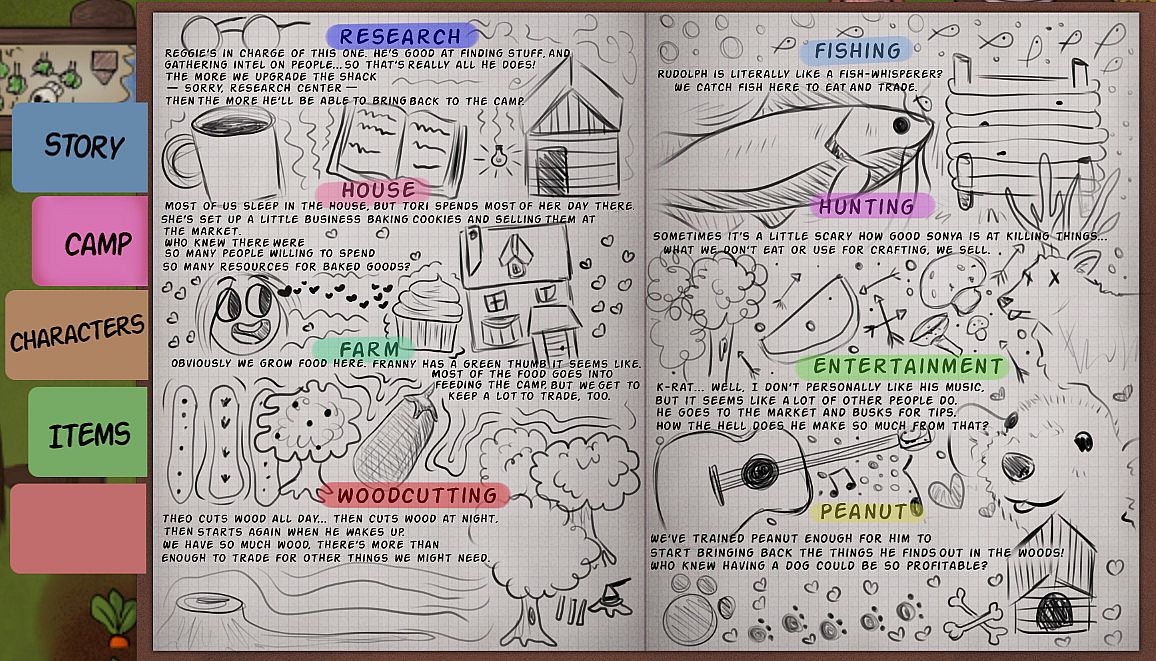 STORY
CAMP
CHARACTERS
ITEMS
RESEARCH
REGGIE'S IN CHARGE OF THIS ONE. HE'S GOOD AT FINDING STUFF, AND
GATHERING INTEL ON PEOPLE...SO THAT'S REALLY ALL HE DOES!
THE MORE WE UPGRADE THE SHACK
— SORRY, RESEARCH CENTER —
THEN THE MORE HE'LL BE ABLE TO BRING BACK TO THE CAMP.
HOUSE
MOST OF US SLEEP IN THE HOUSE, BUT TORI SPENDS MOST OF HER DAY THERE.
SHE'S SET UP A LITTLE BUSINESS BAKING COOKIES AND SELLING THEM AT
THE MARKET.
WHO KNEW THERE WERE
SO MANY PEOPLE WILLING TO SPEND
SO MANY RESOURCES FOR BAKED GOODS?
FARM
OBVIOUSLY WE GROW FOOD HERE. FRANNY HAS A GREEN THUMB IT SEEMS LIKE.
MOST OF THE FOOD GOES INTO
FEEDING THE CAMP, BUT WE GET TO
KEEP A LOT TO TRADE, TOO.
WOODCUTTING
THEO CUTS WOOD ALL DAY... THEN CUTS WOOD AT NIGHT.
THEN STARTS AGAIN WHEN HE WAKES UP.
WE HAVE SO MUCH WOOD, THERE'S MORE THAN
ENOUGH TO TRADE FOR OTHER THINGS WE MIGHT NEED.
FISHING
RUDOLPH IS LITERALLY LIKE A FISH-WHISPERER?
WE CATCH FISH HERE TO EAT AND TRADE.
HUNTING
SOMETIMES IT'S A LITTLE SCARY HOW GOOD SONYA IS AT KILLING THINGS...
WHAT WE DON'T EAT OR USE FOR CRAFTING, WE SELL.
ENTERTAINMENT
K-RAT... WELL, I DON'T PERSONALLY LIKE HIS MUSIC,
BUT IT SEEMS LIKE A LOT OF OTHER PEOPLE DO.
HE GOES TO THE MARKET AND BUSKS FOR TIPS.
HOW THE HELL DOES HE MAKE SO MUCH FROM THAT?
PEANUT
WE'VE TRAINED PEANUT ENOUGH FOR HIM TO
START BRINGING BACK THE THINGS HE FINDS OUT IN THE WOODS!
WHO KNEW HAVING A DOG COULD BE SO PROFITABLE?